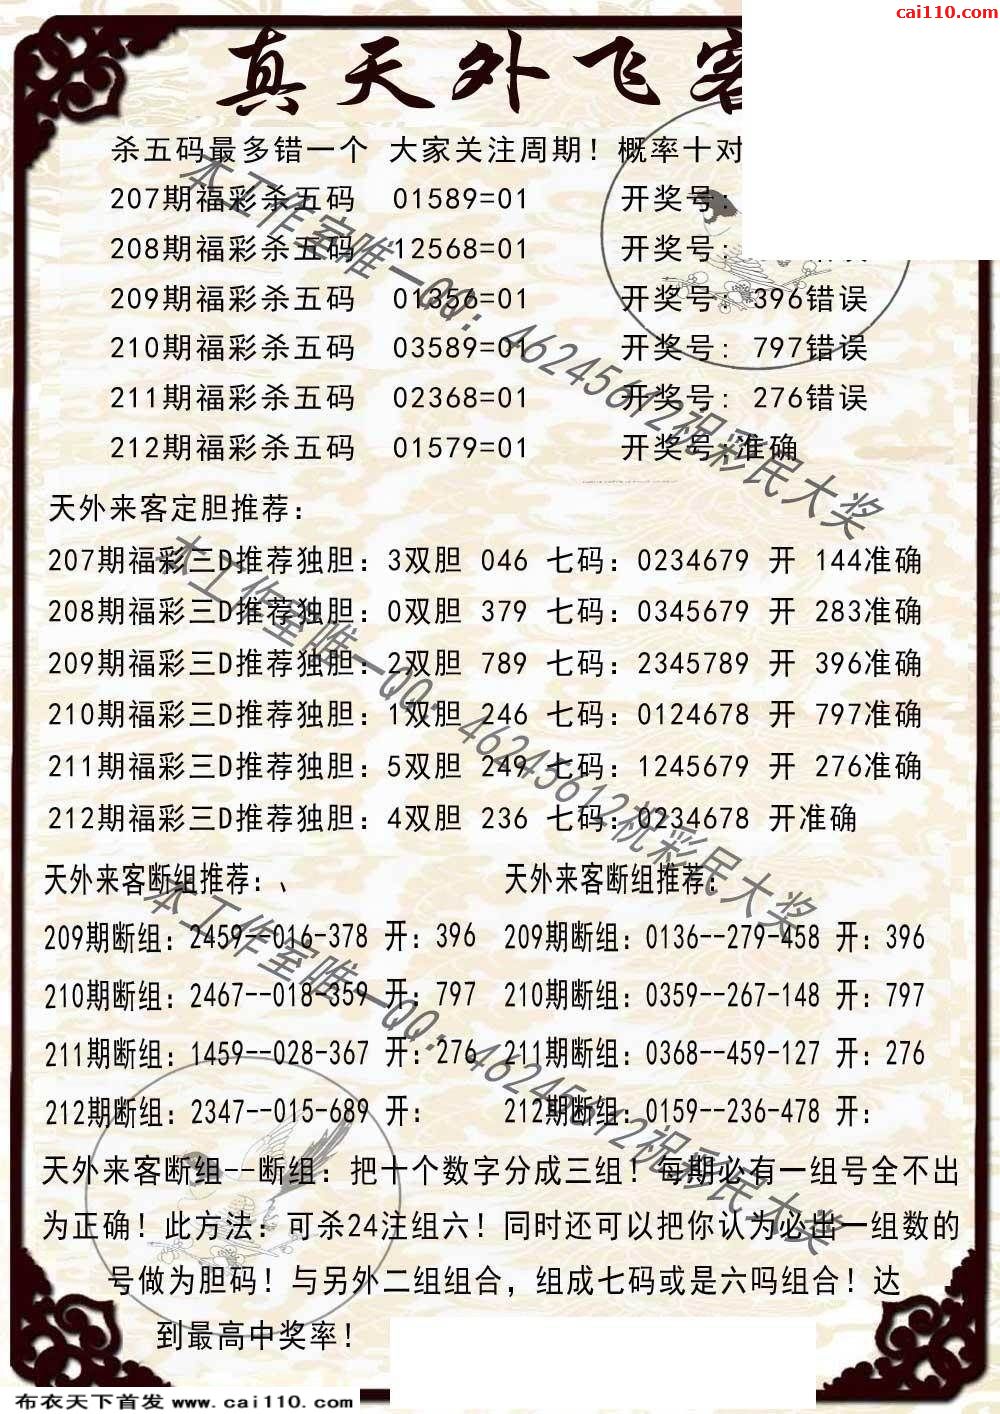 cai110.com
真天外飞客
杀五码最多错一个 大家关注周期！概率十对
207期福彩杀五码 01589=01 开奖号:
208期福彩杀五码 12568=01 开奖号:
209期福彩杀五码 01356=01 开奖号: 396错误
210期福彩杀五码 03589=01 开奖号: 797错误
211期福彩杀五码 02368=01 开奖号: 276错误
212期福彩杀五码 01579=01 开奖号:准确
天外来客定胆推荐：
207期福彩三D推荐独胆：3双胆 046 七码：0234679 开 144准确
208期福彩三D推荐独胆：0双胆 379 七码：0345679 开 283准确
209期福彩三D推荐独胆：2双胆 789 七码：2345789 开 396准确
210期福彩三D推荐独胆：1双胆 246 七码：0124678 开 797准确
211期福彩三D推荐独胆：5双胆 249 七码：1245679 开 276准确
212期福彩三D推荐独胆：4双胆 236 七码：0234678 开准确
天外来客断组推荐：、 天外来客断组推荐：
209期断组：2459--016-378 开：396 209期断组：0136--279-458 开：396
210期断组：2467--018-359 开：797 210期断组：0359--267-148 开：797
211期断组：1459--028-367 开：276 211期断组：0368--459-127 开：276
212期断组：2347--015-689 开： 212期断组：0159--236-478 开：
天外来客断组--断组：把十个数字分成三组！每期必有一组号全不出
为正确！此方法：可杀24注组六！同时还可以把你认为必出一组数的
号做为胆码！与另外二组组合，组成七码或是六吗组合！达
到最高中奖率！
本工作室唯一QQ：46245612祝彩民大奖
本工作室唯一QQ：46245612祝彩民大奖
本工作室唯一QQ：46245612祝彩民大奖
布衣天下首发 www.cai110.com